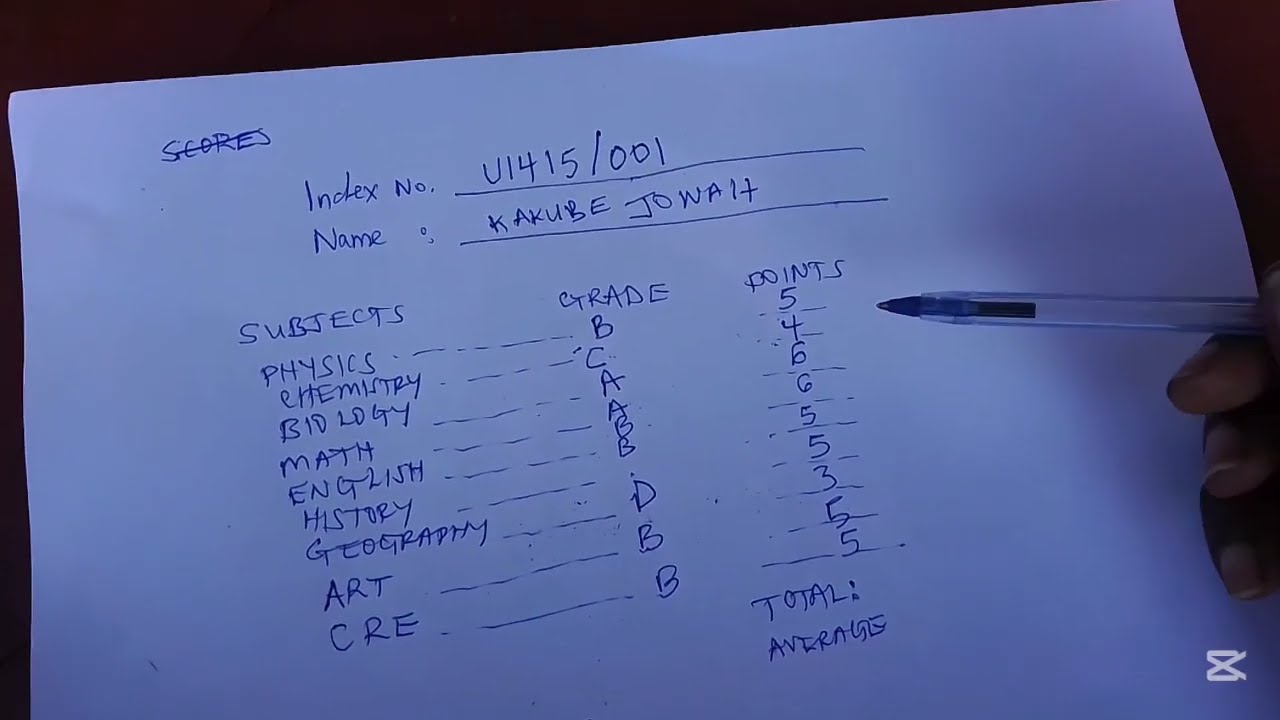 SCORES
Index No. U1415/001
Name : KAKUBE JOWAH
SUBJECTS GRADE POINTS
PHYSICS B 5
CHEMISTRY C 4
BIOLOGY A 6
MATH A 6
ENGLISH B 5
HISTORY B 5
GEOGRAPHY D 3
ART B 5
CRE B 5
TOTAL:
AVERAGE